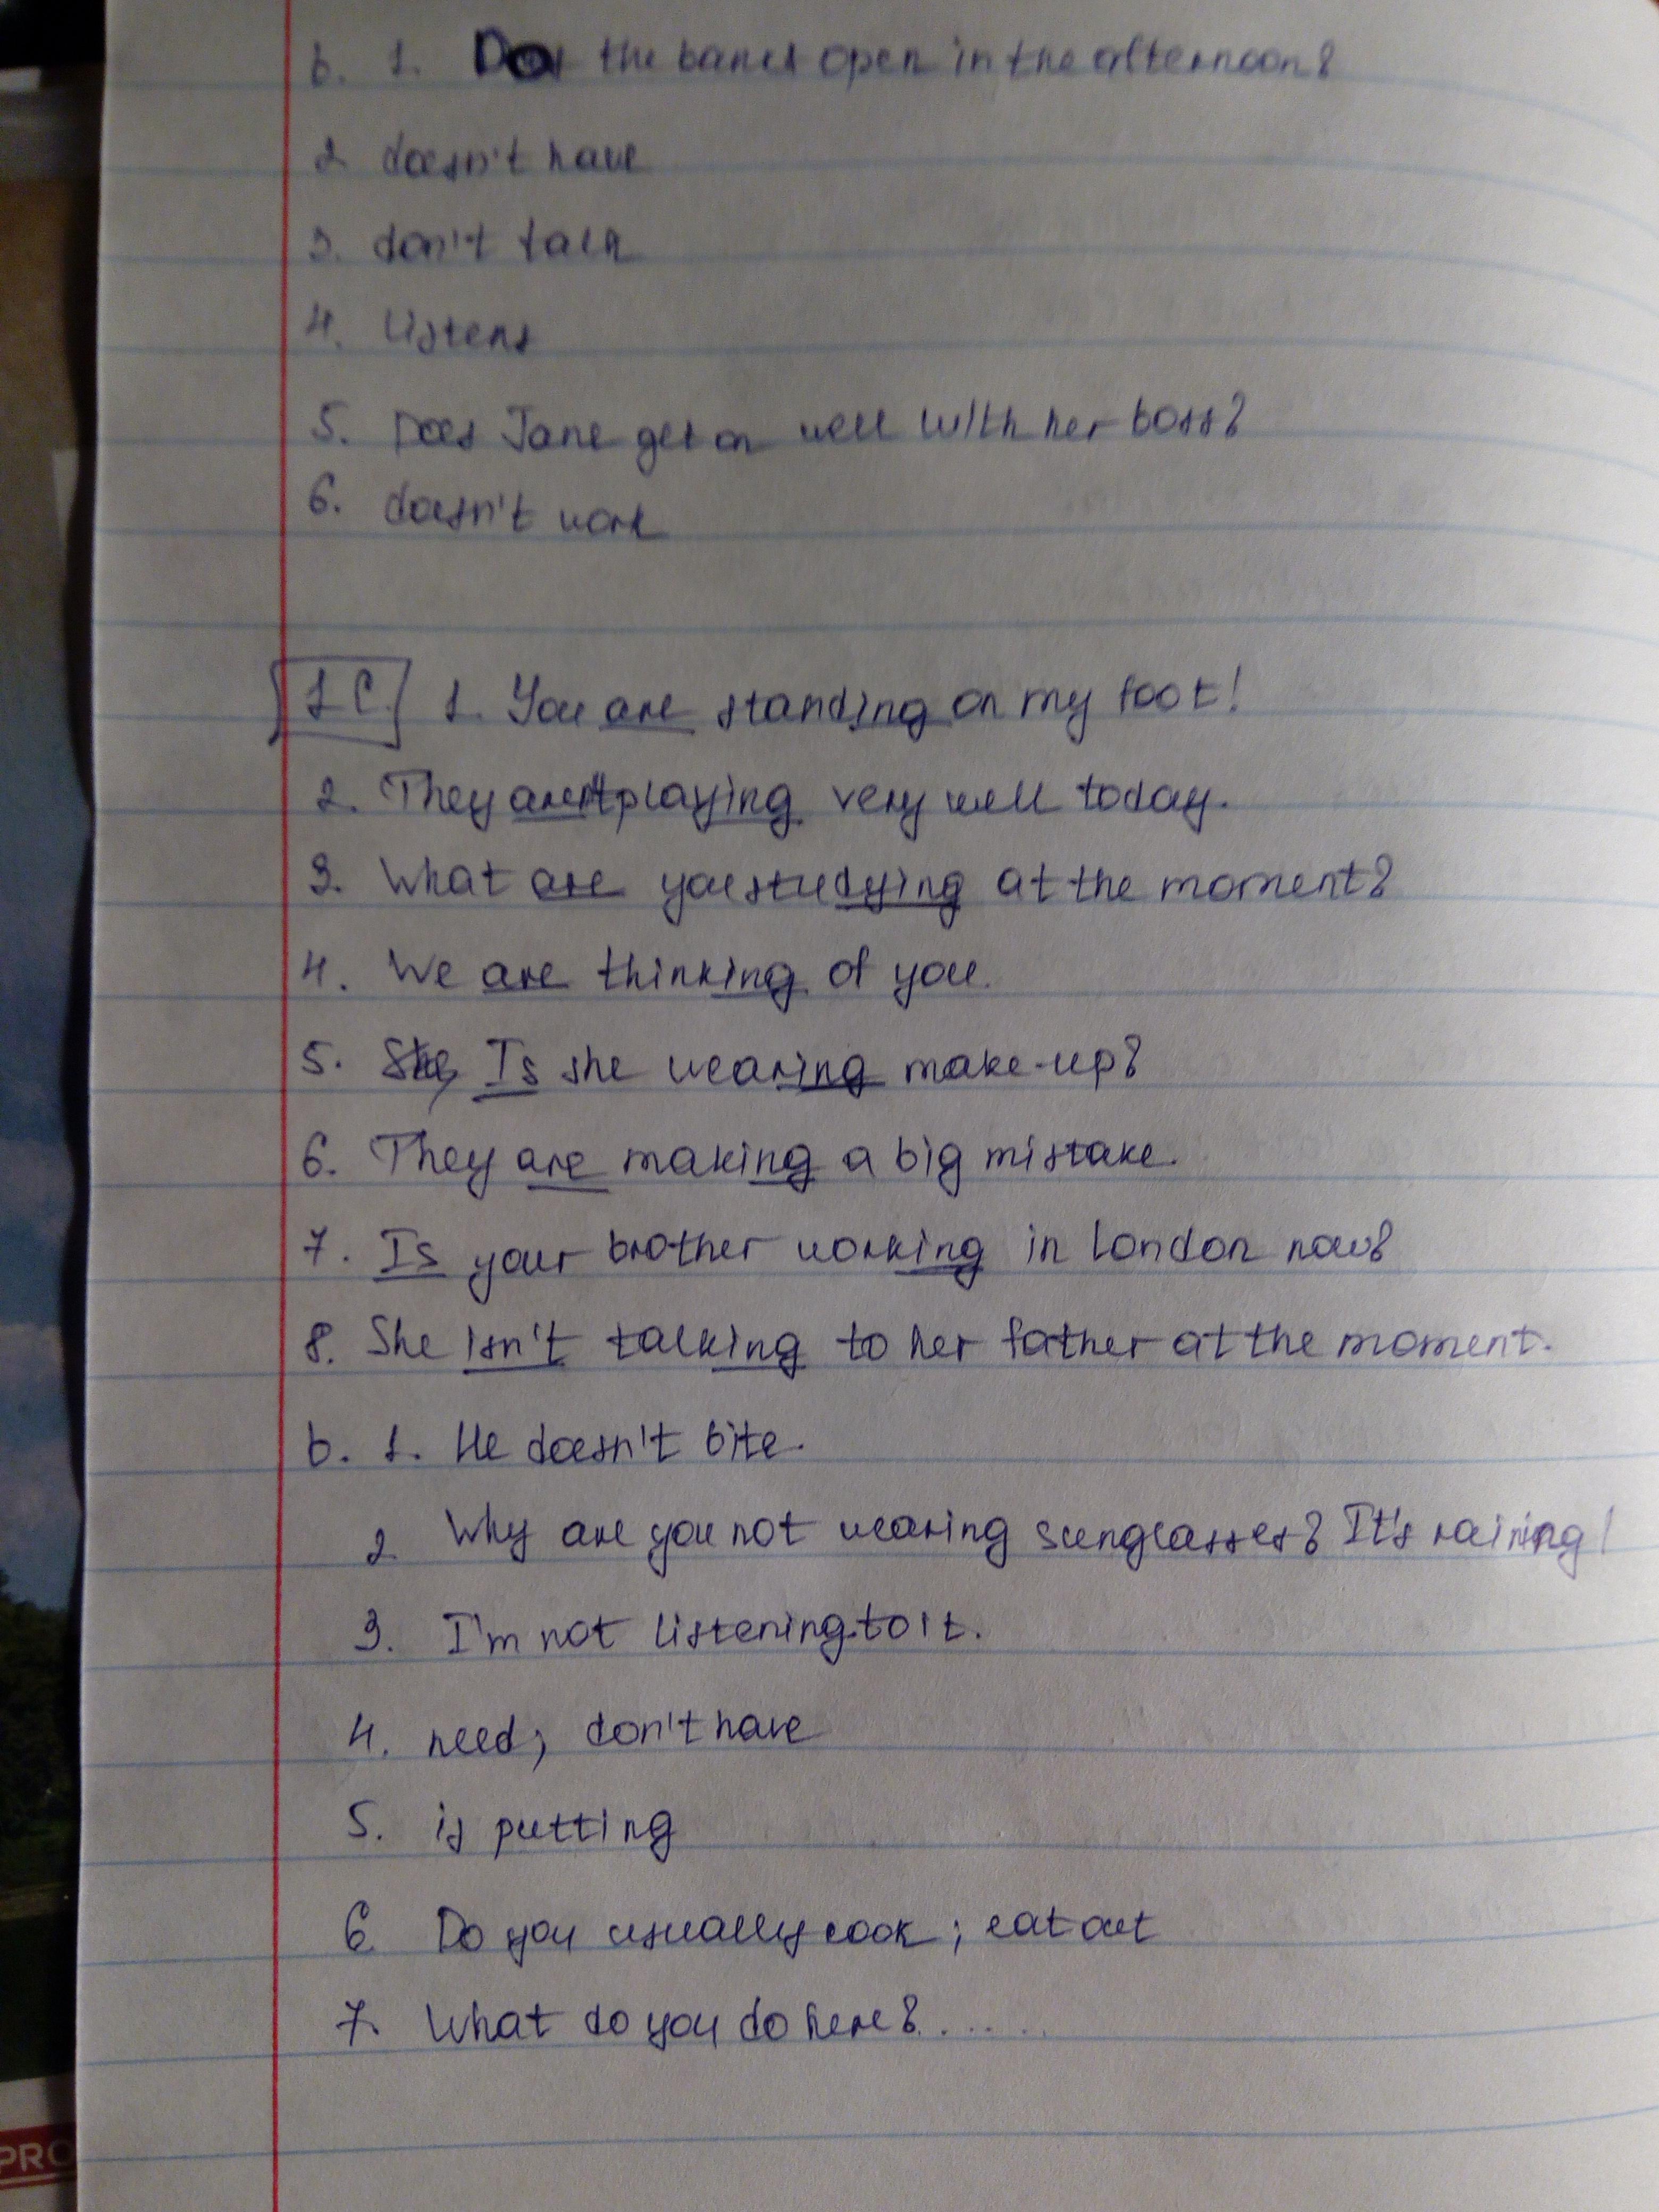 b. 1. Do the banks open in the afternoon?
2 doesn't have
3. don't talk
4. listens
5. Does Jane get on well with her boss?
6. doesn't work
1C 1. You are standing on my foot!
2. They aren't playing very well today.
3. What are you studying at the moment?
4. We are thinking of you.
5. She Is she wearing make-up?
6. They are making a big mistake.
7. Is your brother working in London now?
8. She isn't talking to her father at the moment.
b. 1. He doesn't bite.
2 Why are you not wearing sunglasses? It's raining!
3. I'm not listening to it.
4. need; don't have
5. is putting
6 Do you usually cook; eat out
7. What do you do here? .....
PRO